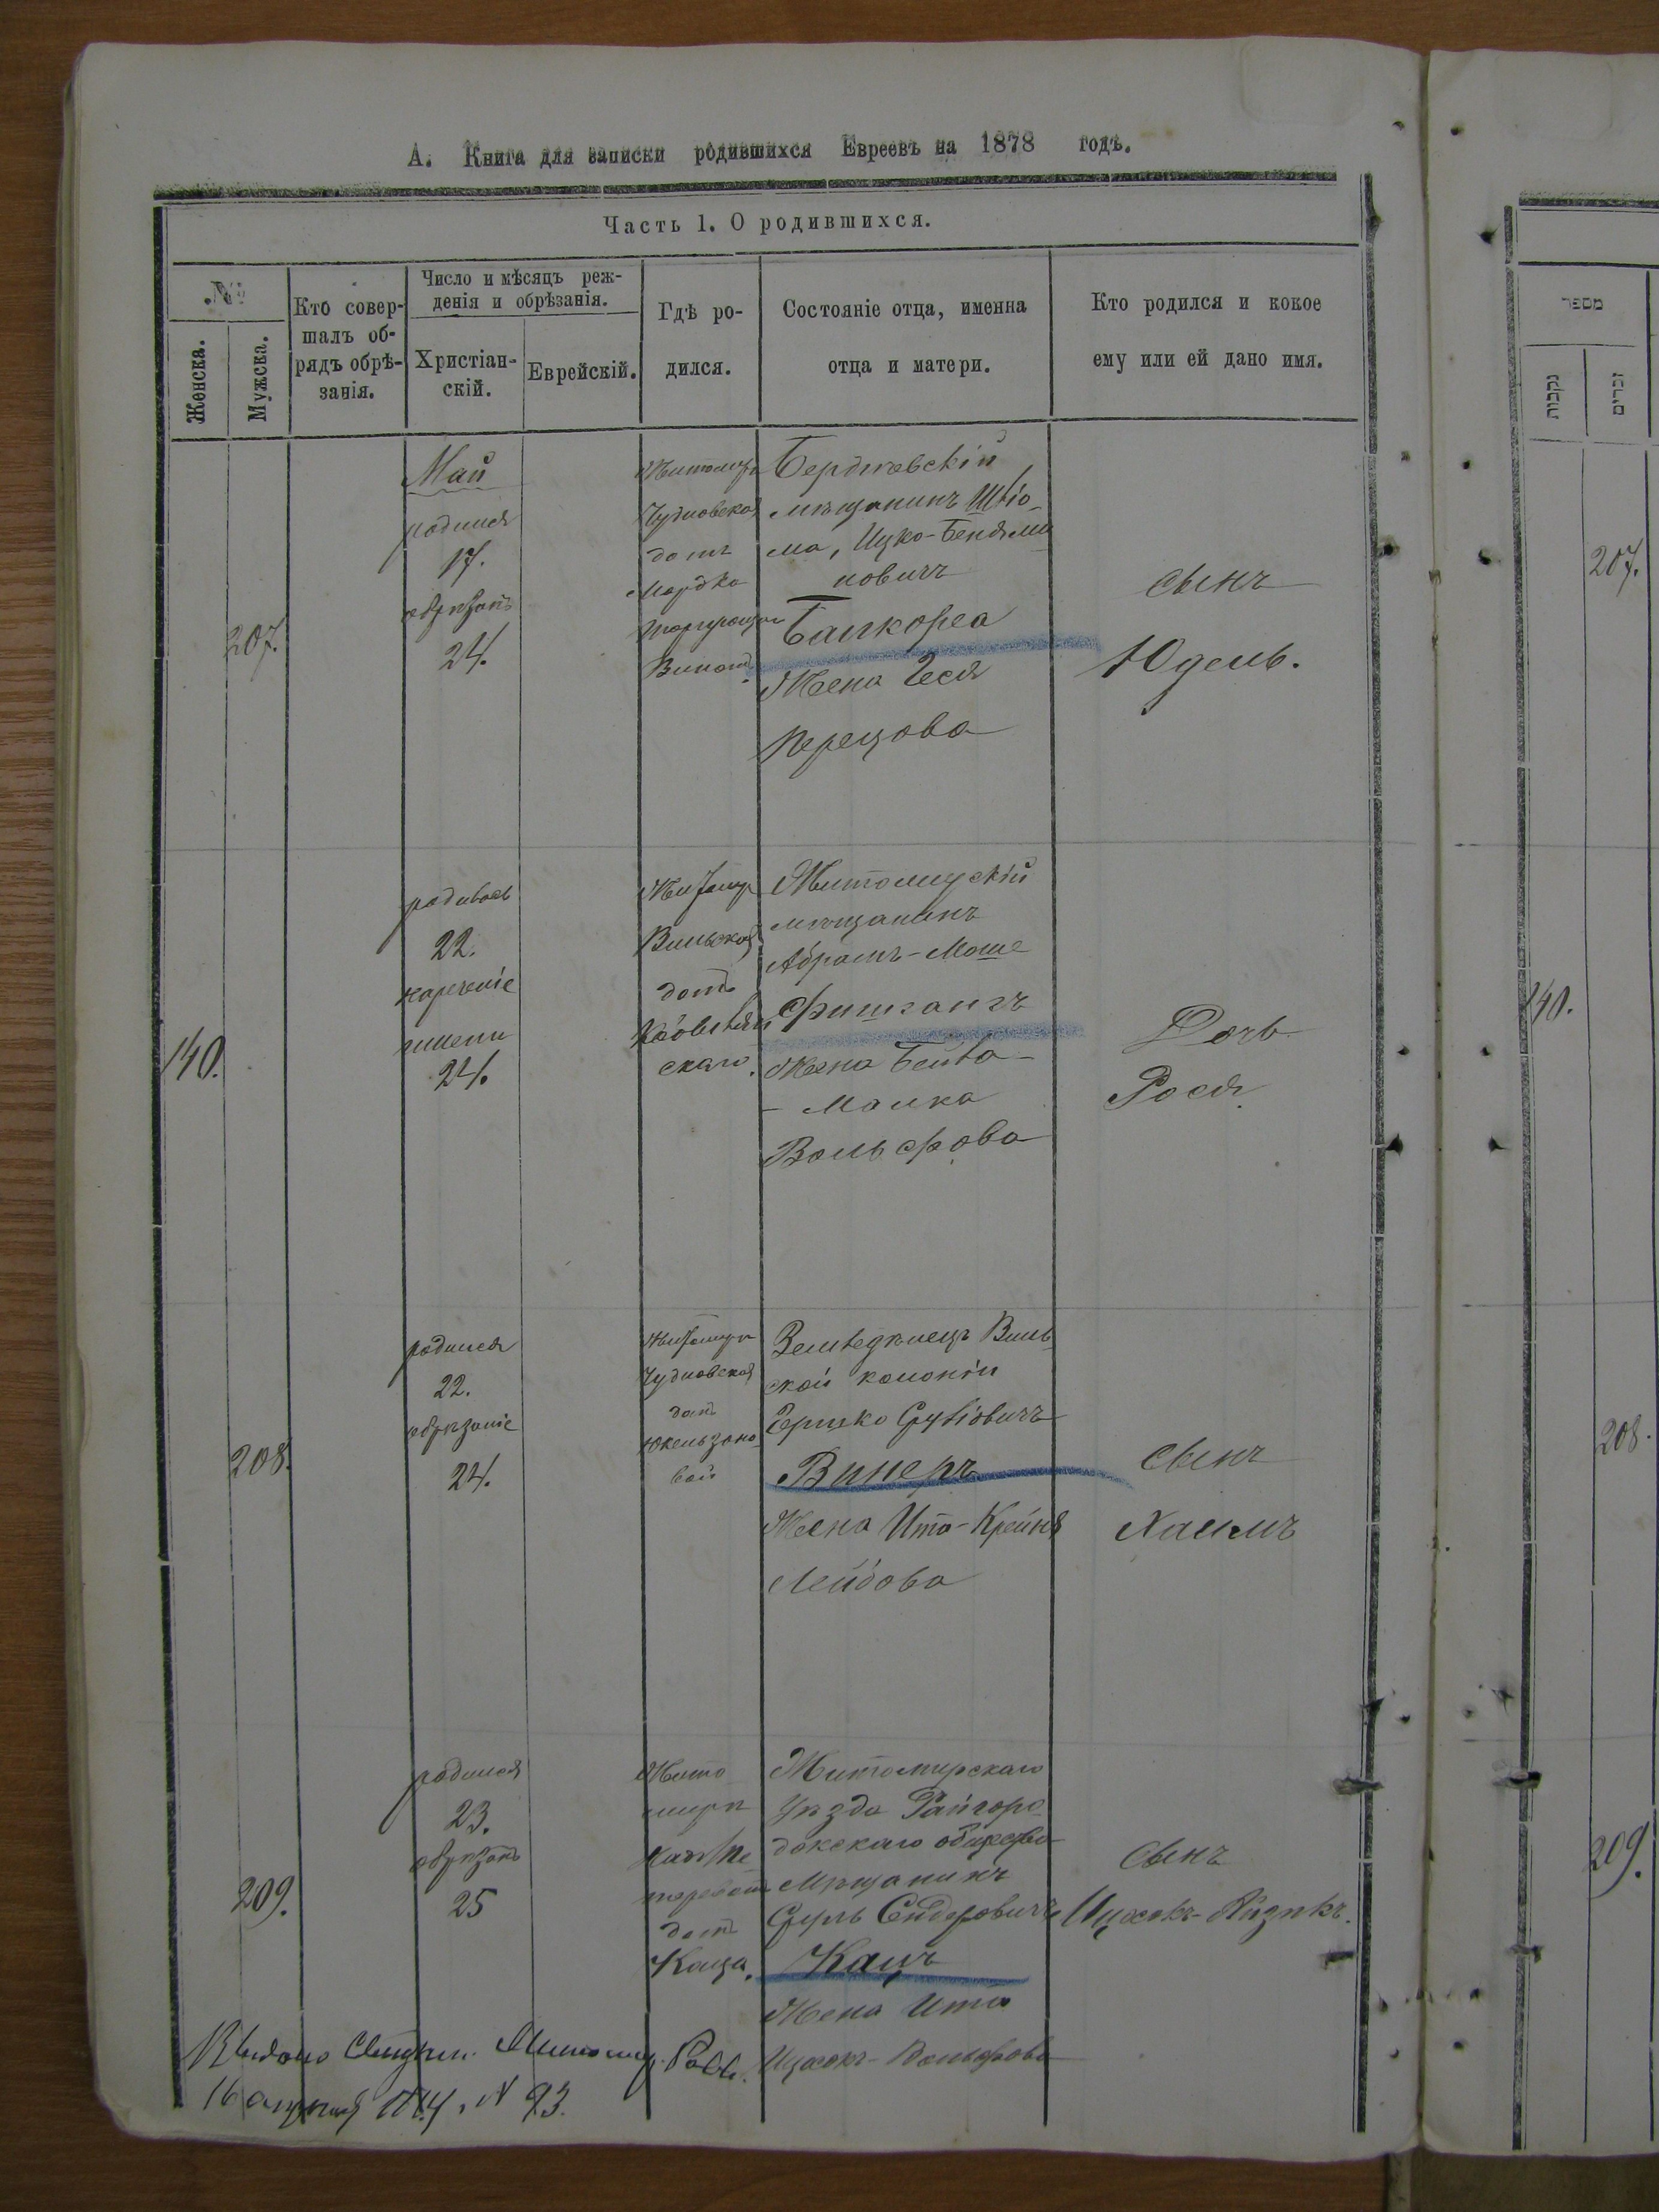 А. Книга для записки родившихся Евреевъ на 1878 годъ.
Часть 1. О родившихся.
№
Женска.
Мужска.
Кто совер-
шалъ об-
рядъ обрѣ-
занія.
Число и мѣсяцъ реж-
денія и обрѣзанія.
Христіан-
скій.
Еврейскій.
Гдѣ ро-
дился.
Состояніе отца, именна
отца и матери.
Кто родился и кокое
ему или ей дано имя.
207.
Май
родился
17.
обрѣзанъ
24.
Житомиръ
Чудновская
домъ
Мордка
Бердичевскій
мѣщанинъ
Ицко-Беньями
новичъ
Жена Геся
Перецова
сынъ
Юдель.
140.
родилась
22.
нареченіе
имени
24.
Житомир
Вильская
домъ
скаго.
Житомирскій
мѣщанинъ
Абрамъ-Моше
Фишгангъ
Жена
Малка
Вольфова
Дочь
Рося.
208.
родился
22.
обрѣзаніе
24.
Житомиръ
Чудновская
домъ
вой
Земледѣлецъ Виль
ской колоніи
Гершко Срулiовичъ
Винеръ
Жена Ита-Крейня
Лейбова
сынъ
Хаимъ
209.
родился
23.
обрѣзанъ
25
Жито
миръ
домъ
Каца.
Житомирскаго
уѣзда Райгоро
докскаго общества
Мѣщанинъ
Сруль
Кацъ
Жена Ита
Ицхокъ-Вольфова
сынъ
Ицхокъ-Айзикъ.
Выдано
16 апрѣля № 93.
מספר
נקבות
זכרים
207.
140.
208.
209.